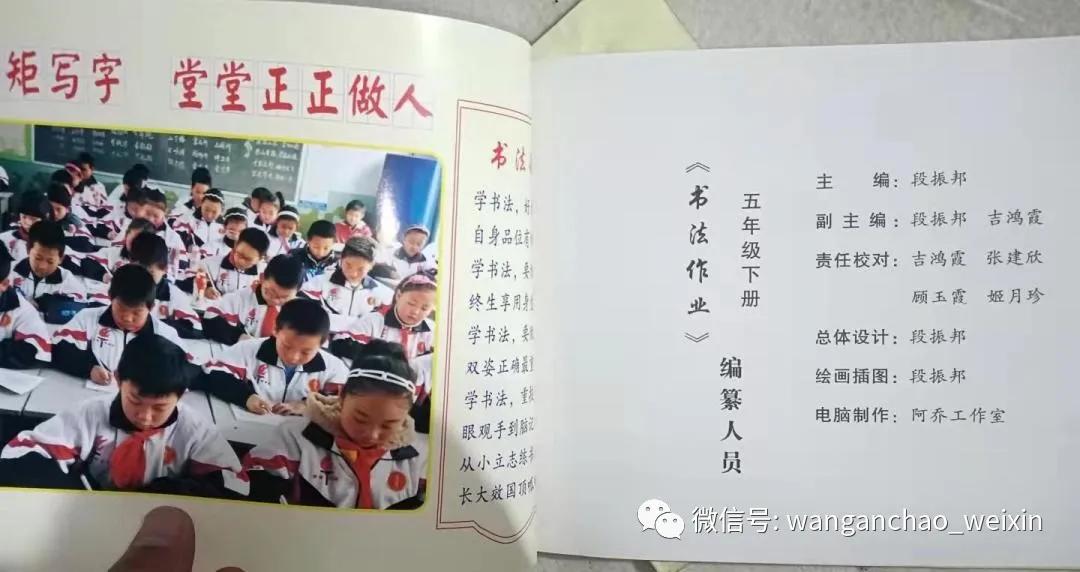 矩写字 堂堂正正做人
书法
学书法，好
自身品位有
学书法，要
终生享用身
学书法，要
双姿正确最重
学书法，重
眼观手到脑记
从小立志练书
长大效国顶呱
《书法作业》
五年级下册
编纂人员
主 编：段振邦
副主编：段振邦 吉鸿霞
责任校对：吉鸿霞 张建欣
顾玉霞 姬月珍
总体设计：段振邦
绘画插图：段振邦
电脑制作：阿乔工作室
微信号: wanganchao_weixin